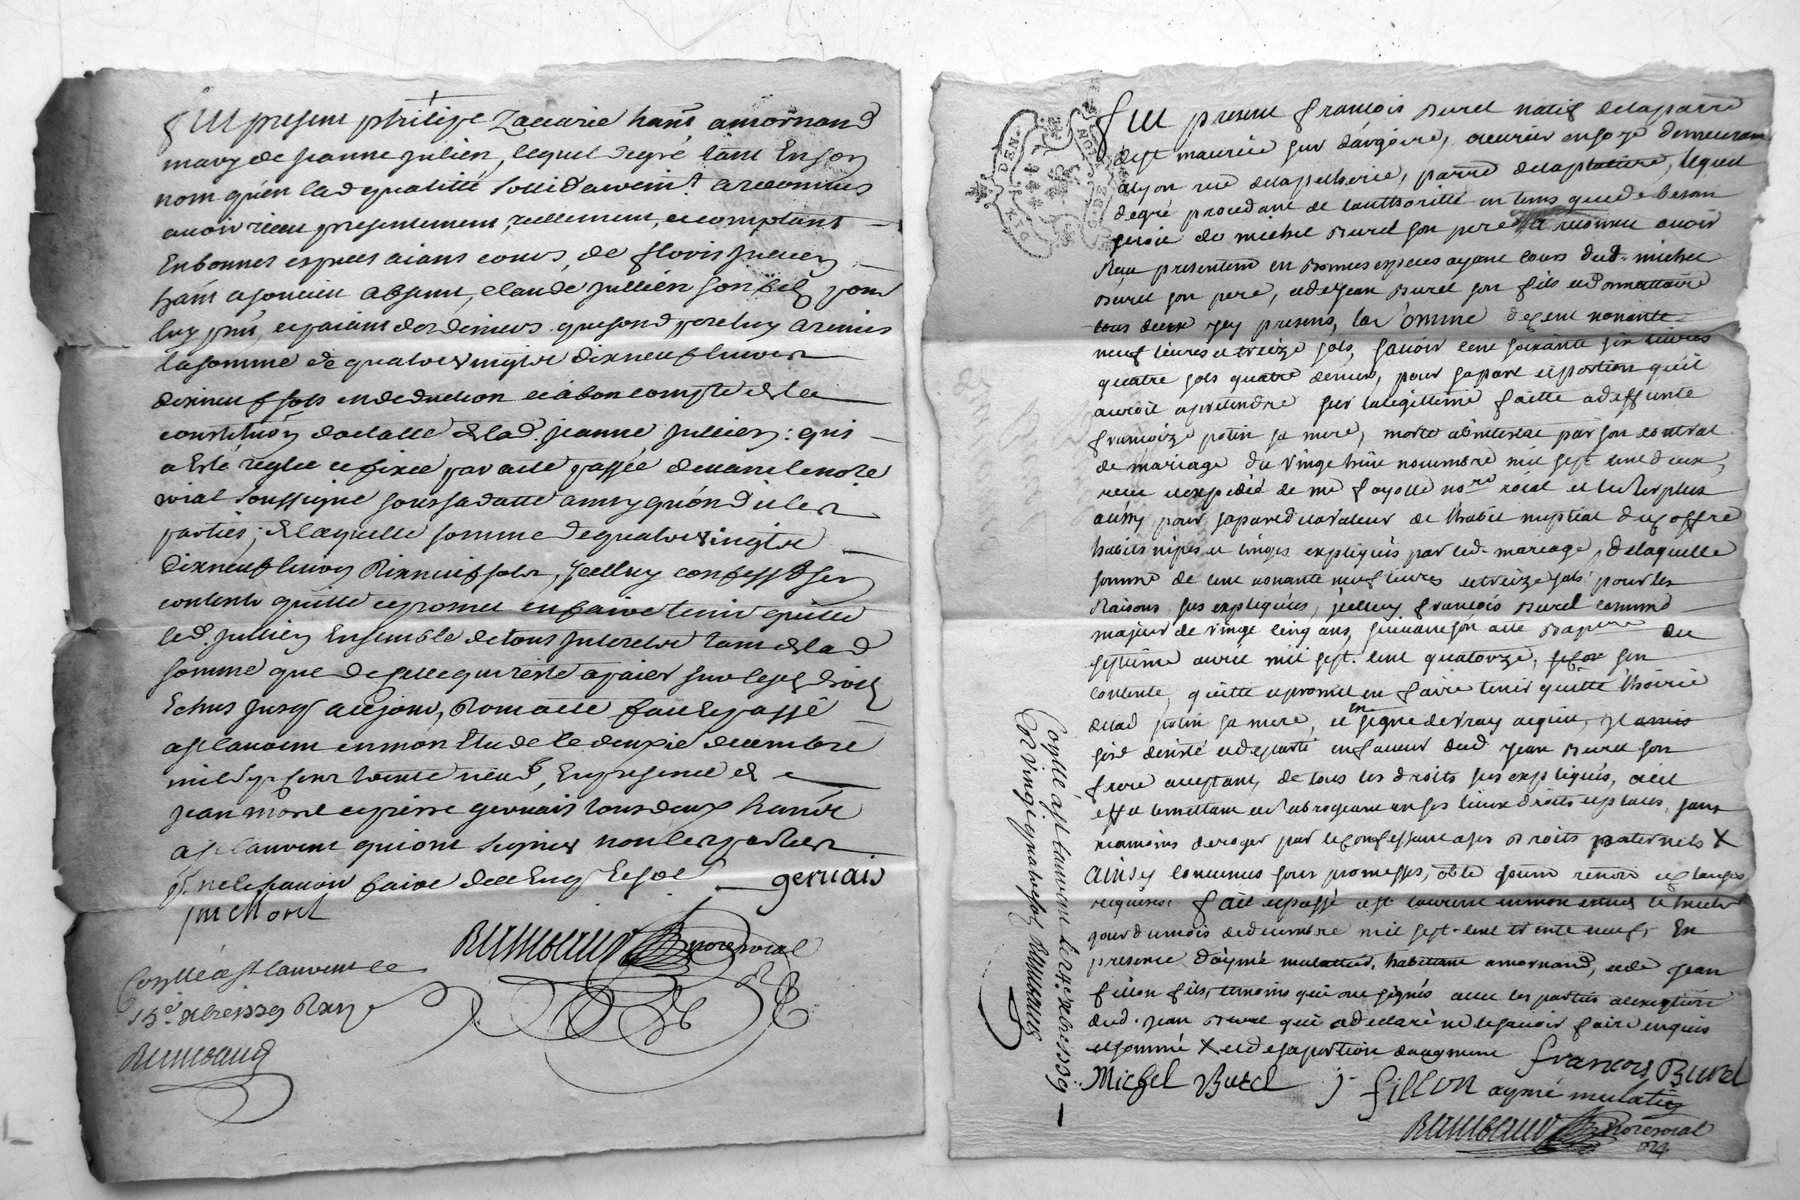 Fut present philipe Zacarie hant a mornand
mary de jeanne Julien, lequel degré tant En son
nom qu'en lad qualitté sollidairemt a reconnus
avoir receu presentement, reellement, et comptant
En bonnes espèces aians cours, de
hant a soucieu absent, claude Jullien son fils pour
luy pnt, et paiant des deniers que sond pere luy a remis
la somme de quatrevingtre dixneuf livres
dixneuf sols en deduction et à bon compte de la
constitu͠on dotalle de lad. jeanne Jullien: qui
a Esté reglée et fixée par acte passée devant le note
roial soussigné sous sa datte ainsy qu'ón dit les
parties; de laquelle somme de quatrevingtre
dixneuf livres dixneuf sols, jcelluy confesst s'en
contente quitte et promet en faire tenir quitte
led. Jullien Ensemble de tous Interetre tant de lad
somme que de celle qui reste a paier sur lesd droits
Echus Jusqu'aujour, Dont acte fait Et passé
a st laurent en món Etude le deuxie decembre
mil sept cent trente neuf, En presence de
jean mont et pierre gervais tous deux hants
a st laurent qui ont signés non les parties
pr. ne le sçavoir faire de ce Enq Et som gervais
jm Mont
Rambaud note roial
Conllé a st laurent le
15e xbre 1739 Rx
Rambaud
Fut present francois Burel natif de la parre
de st maurice sur dargoire, ouvrier en soye demeurant
a lyon rue de la pescherie, parre de la platiere, lequel
degré procedant de l'authoritté en tems que de besoin
seroit de michel Burel son pere a reconnu avoir
Receu presentemt en Bonnes especes ayant cours dud. michel
Burel son pere, et de jean Burel son fils et donnattaire
tous deux jcy presens, la somme de cent nonante
neuf livres et treize sols, sçavoir cent soixante six livres
quatre sols quatre deniers, pour sa part et portion qu'il
auroit a pretendre sur la legittime faitte a deffunte
francoize potin sa mere, morte abintestat par son contrat
de mariage du vingt huit novembre mil sept cent deux,
receu et expedié de me fayolle nore roial et le surplus
aussy pour sa part de la valeur de l'habit nuptial du coffre
habits nipes et linges expliqués par led. mariage, de laquelle
somme de cent nonante neuf livres et treize sols pour les
Raisons sus expliquées, jcelluy francois Burel comme
majeur de vingt cinq ans, suivant son acte Baptere du
septieme avril mil sept cent quatorze, s'en
contente, quitte et promet en faire tenir quitte l'hoirie
de lad potin sa mere, et En signe de vray acquit,
s'est demis et departi en faveur dud jean Burel son
frere acceptant, de tous les droits sus expliqués, a cet
effet le mettant et subrogeant en ses lieux droits et places, sans
neamoins deroger par le confessant a ses droits paternels X
Ainsy convenus sous promesses, obl͠e soum renon et clauses
requises. fait et passé a st laurent en mon etude le
jour du mois de decembre mil sept cent trente neuf, En
presence d'aymé mulattier, habitant a mornand, et de jean
fillon fils, temoins qui ont signés avec les parties a l'exeption
dud. jean Burel qui a declaré ne le sçavoir faire enquis
et sommé X et de sa portion d'augment francois Burel
Michel Burel j fillon aymé mulatier
Rambaud note roial
Conllé a st laurent le xbre 1739
Rambaud